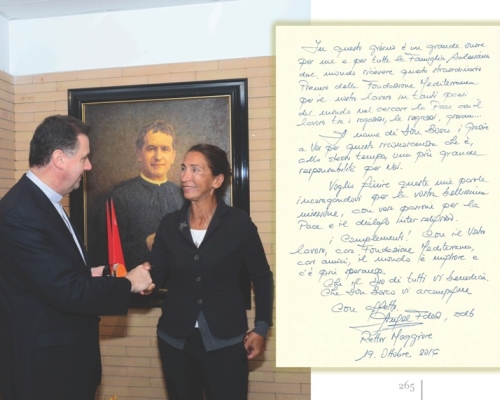 In questo giorno è un grande onore
per me e per tutta la Famiglia Salesiana
dal mondo ricevere questo straordinario
Premio della Fondazione Mediterraneo
per il nostro lavoro in tanti paesi
del mondo nel cercare la Pace con il
lavoro tra i ragazzi, le ragazze, giovani...
A nome di Don Bosco, grazie
a Voi per questo riconoscimento che è,
allo stesso tempo, una più grande
responsabilità per Noi.
Voglio finire queste mie parole
incoraggiandovi per la vostra bellissima
missione, con vera passione per la
Pace e il dialogo interreligioso.
¡ Complimenti! Con il Vostro
lavoro, con Fondazione Mediterraneo,
con amici, il mondo è migliore e
c'è più speranza.
Che il Dio di tutti vi benedica.
Che Don Bosco vi accompagni
Con affetto,
Ángel F. sdb
Rettor Maggiore
19. Ottobre
265